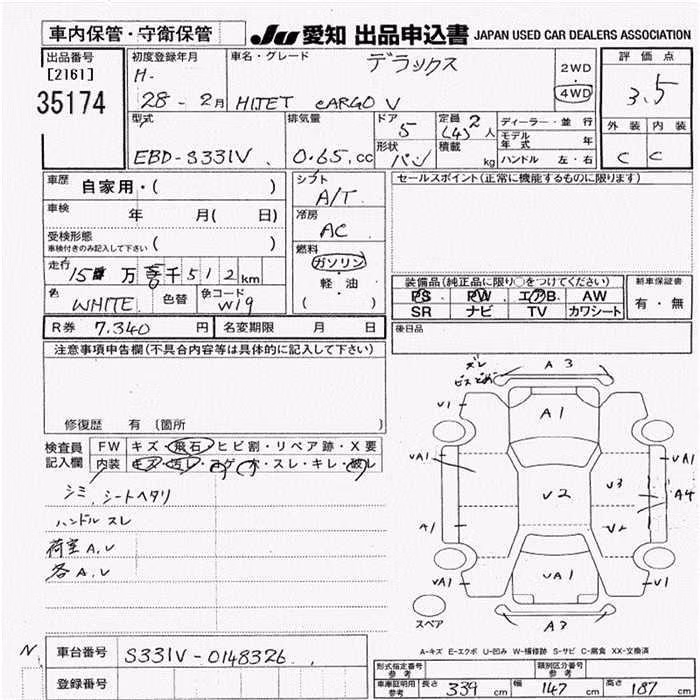 車内保管・守衛保管
JU 愛知 出品申込書 JAPAN USED CAR DEALERS ASSOCIATION
出品番号
[2161]
35174
初度登録年月
H-
28 - 2月
車名・グレード
デラックス
HIJET CARGO V
2WD
4WD
評価点
3.5
外装 内装
C C
型式
EBD-S331V
排気量
0.65 cc
ドア
5
形状
バン
定員 2
(4) 人
積載 kg
ディーラー・並行
モデル年式 年
ハンドル 左・右
車歴 自家用・( )
車検 年 月( 日)
受検形態
車検付きのみ記入して下さい ( )
走行 15 万 千 512 km
色 WHITE 色替 色コード W19
R券 7.340 円 名変期限 月 日
シフト
A/T
冷房
AC
燃料
ガソリン
・軽・油・
( )
セールスポイント(正常に機能するものに限ります)
装備品(純正品に限り○をつけてください)
PS PW エアB AW
SR ナビ TV カワシート
新車保証書
有・無
後日品
注意事項申告欄(不具合内容等は具体的に記入して下さい)
修復歴 有 〔箇所 〕
検査員記入欄
FW キズ・飛石・ヒビ割・リペア跡・X要
内装 キズ・汚レ・コゲ・穴・スレ・キレ・破レ
シミ、シートヘタリ
ハンドル スレ
荷室A,U
各A,U
ズレ
ビスどめ
A3
U1
A1
UA1
UA1
U2
U3
A4
A1
UA1
UA1
U1
A3
スペア
A-キズ E-エクボ U-凹み W-補修跡 S-サビ C-腐食 XX-交換済
N
車台番号 S331V-0148326
登録番号
形式指定番号 参考
類別区分番号 参考
車庫証明用 参考 長さ 339 cm 幅 147 cm 高さ 187 cm